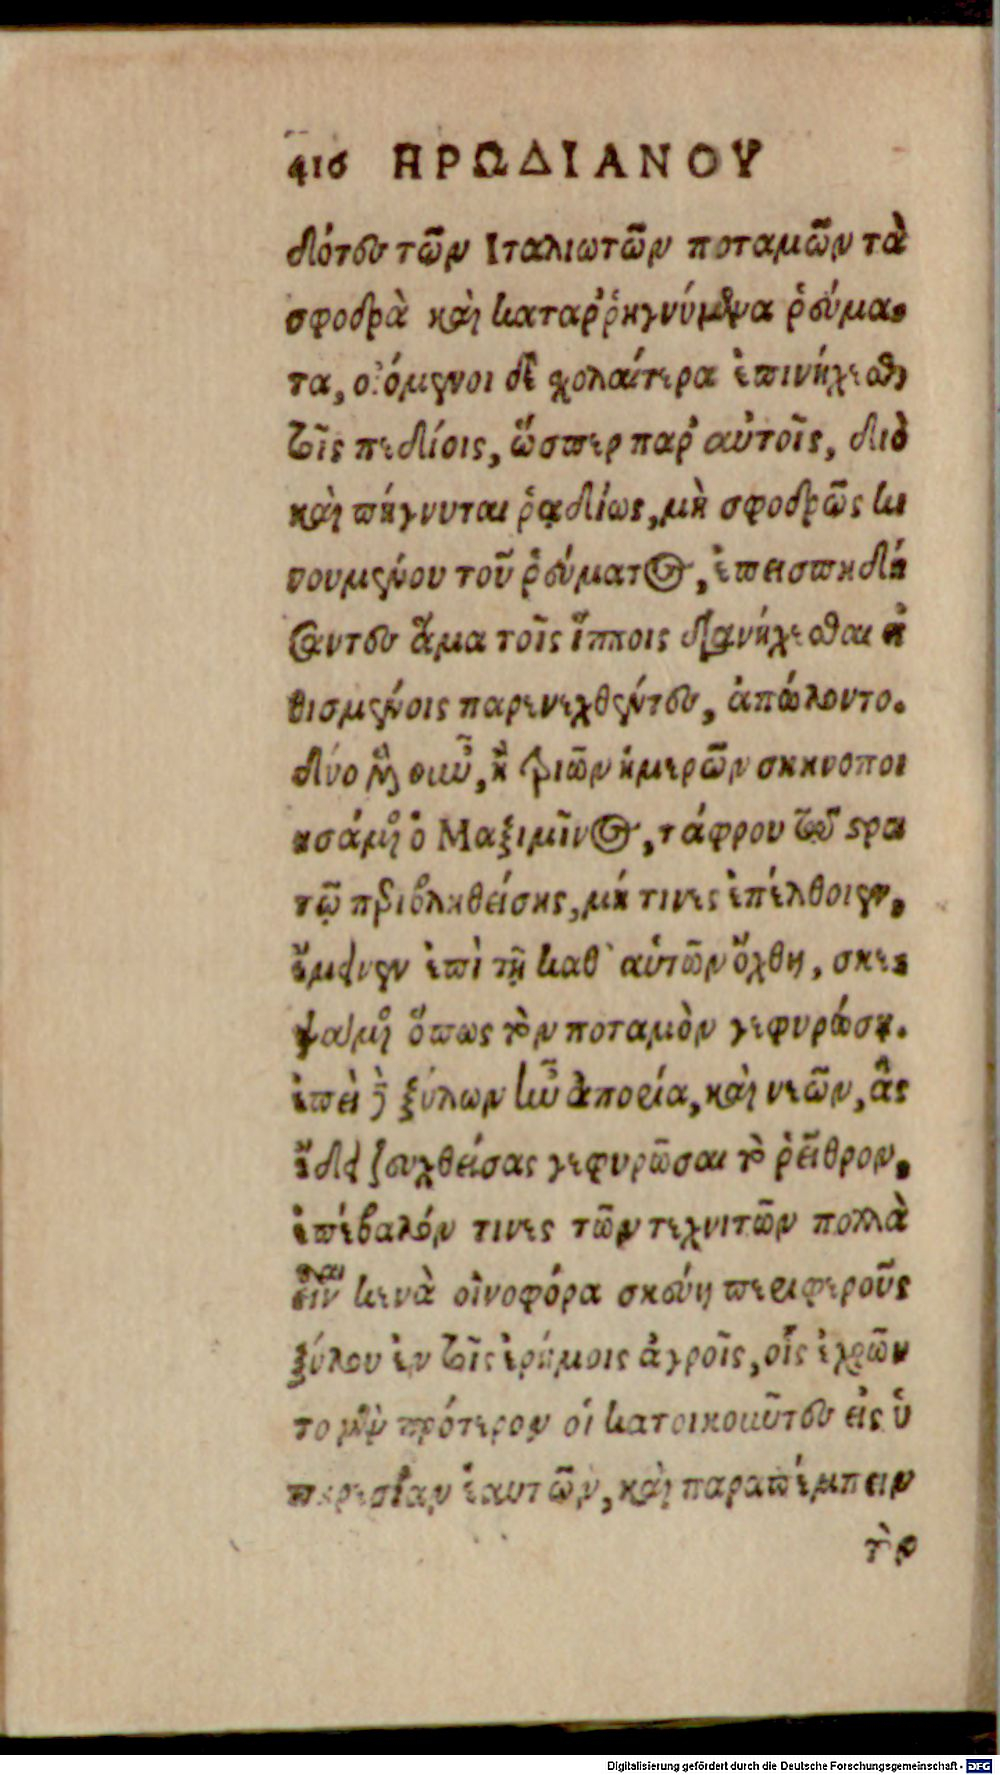 416 ΗΡΩΔΙΑΝΟΥ
διότες τῶν Ιταλιωτῶν ποταμῶν τὰ
σφοδρὰ καὶ καταῤῥηγνύμενα ῥεύμα-
τα, οἰόμενοι δὲ χολαίτερα ἐπινήχεσθαι
τοῖς πεδίοις, ὥσπερ παρ' αὐτοῖς, διὸ
καὶ πήγνυται ῥᾳδίως, μὴ σφοδρῶς κι
νουμένου τοῦ ῥεύματος, ἐπεισπηδή
σαντες ἅμα τοῖς ἵπποις διανήχεσθαι εἰ
θισμένοις παρενεχθέντες, ἀπώλοντο.
δύο μὲν οὖν, ἢ τριῶν ἡμερῶν σκηνοποι
ησάμενος ὁ Μαξιμῖνος, τάφρου τῷ στρα
τῷ περιβληθείσης, μή τινες ἐπέλθοιεν,
ἔμεινεν ἐπὶ τῇ καθ' αὑτῶν ὄχθῃ, σκε-
ψάμενος ὅπως τὸν ποταμὸν γεφυρώσῃ.
ἐπεὶ δὲ ξύλων ἦν ἀπορία, καὶ νεῶν, ἃς
ἔδει ζευχθείσας γεφυρῶσαι τὸ ῥεῖθρον,
ἐπέβαλόν τινες τῶν τεχνιτῶν πολλὰ
εἶναι κενὰ οἰνοφόρα σκεύη περιφεροῦς
ξύλου ἐν τοῖς ἐρήμοις ἀγροῖς, οἷς ἐχρῶν
το μὲν πρότερον οἱ κατοικοῦντες εἰς ὑ
περεσίαν ἑαυτῶν, καὶ παραπέμπειν
τὸν
Digitalisierung gefördert durch die Deutsche Forschungsgemeinschaft - DFG